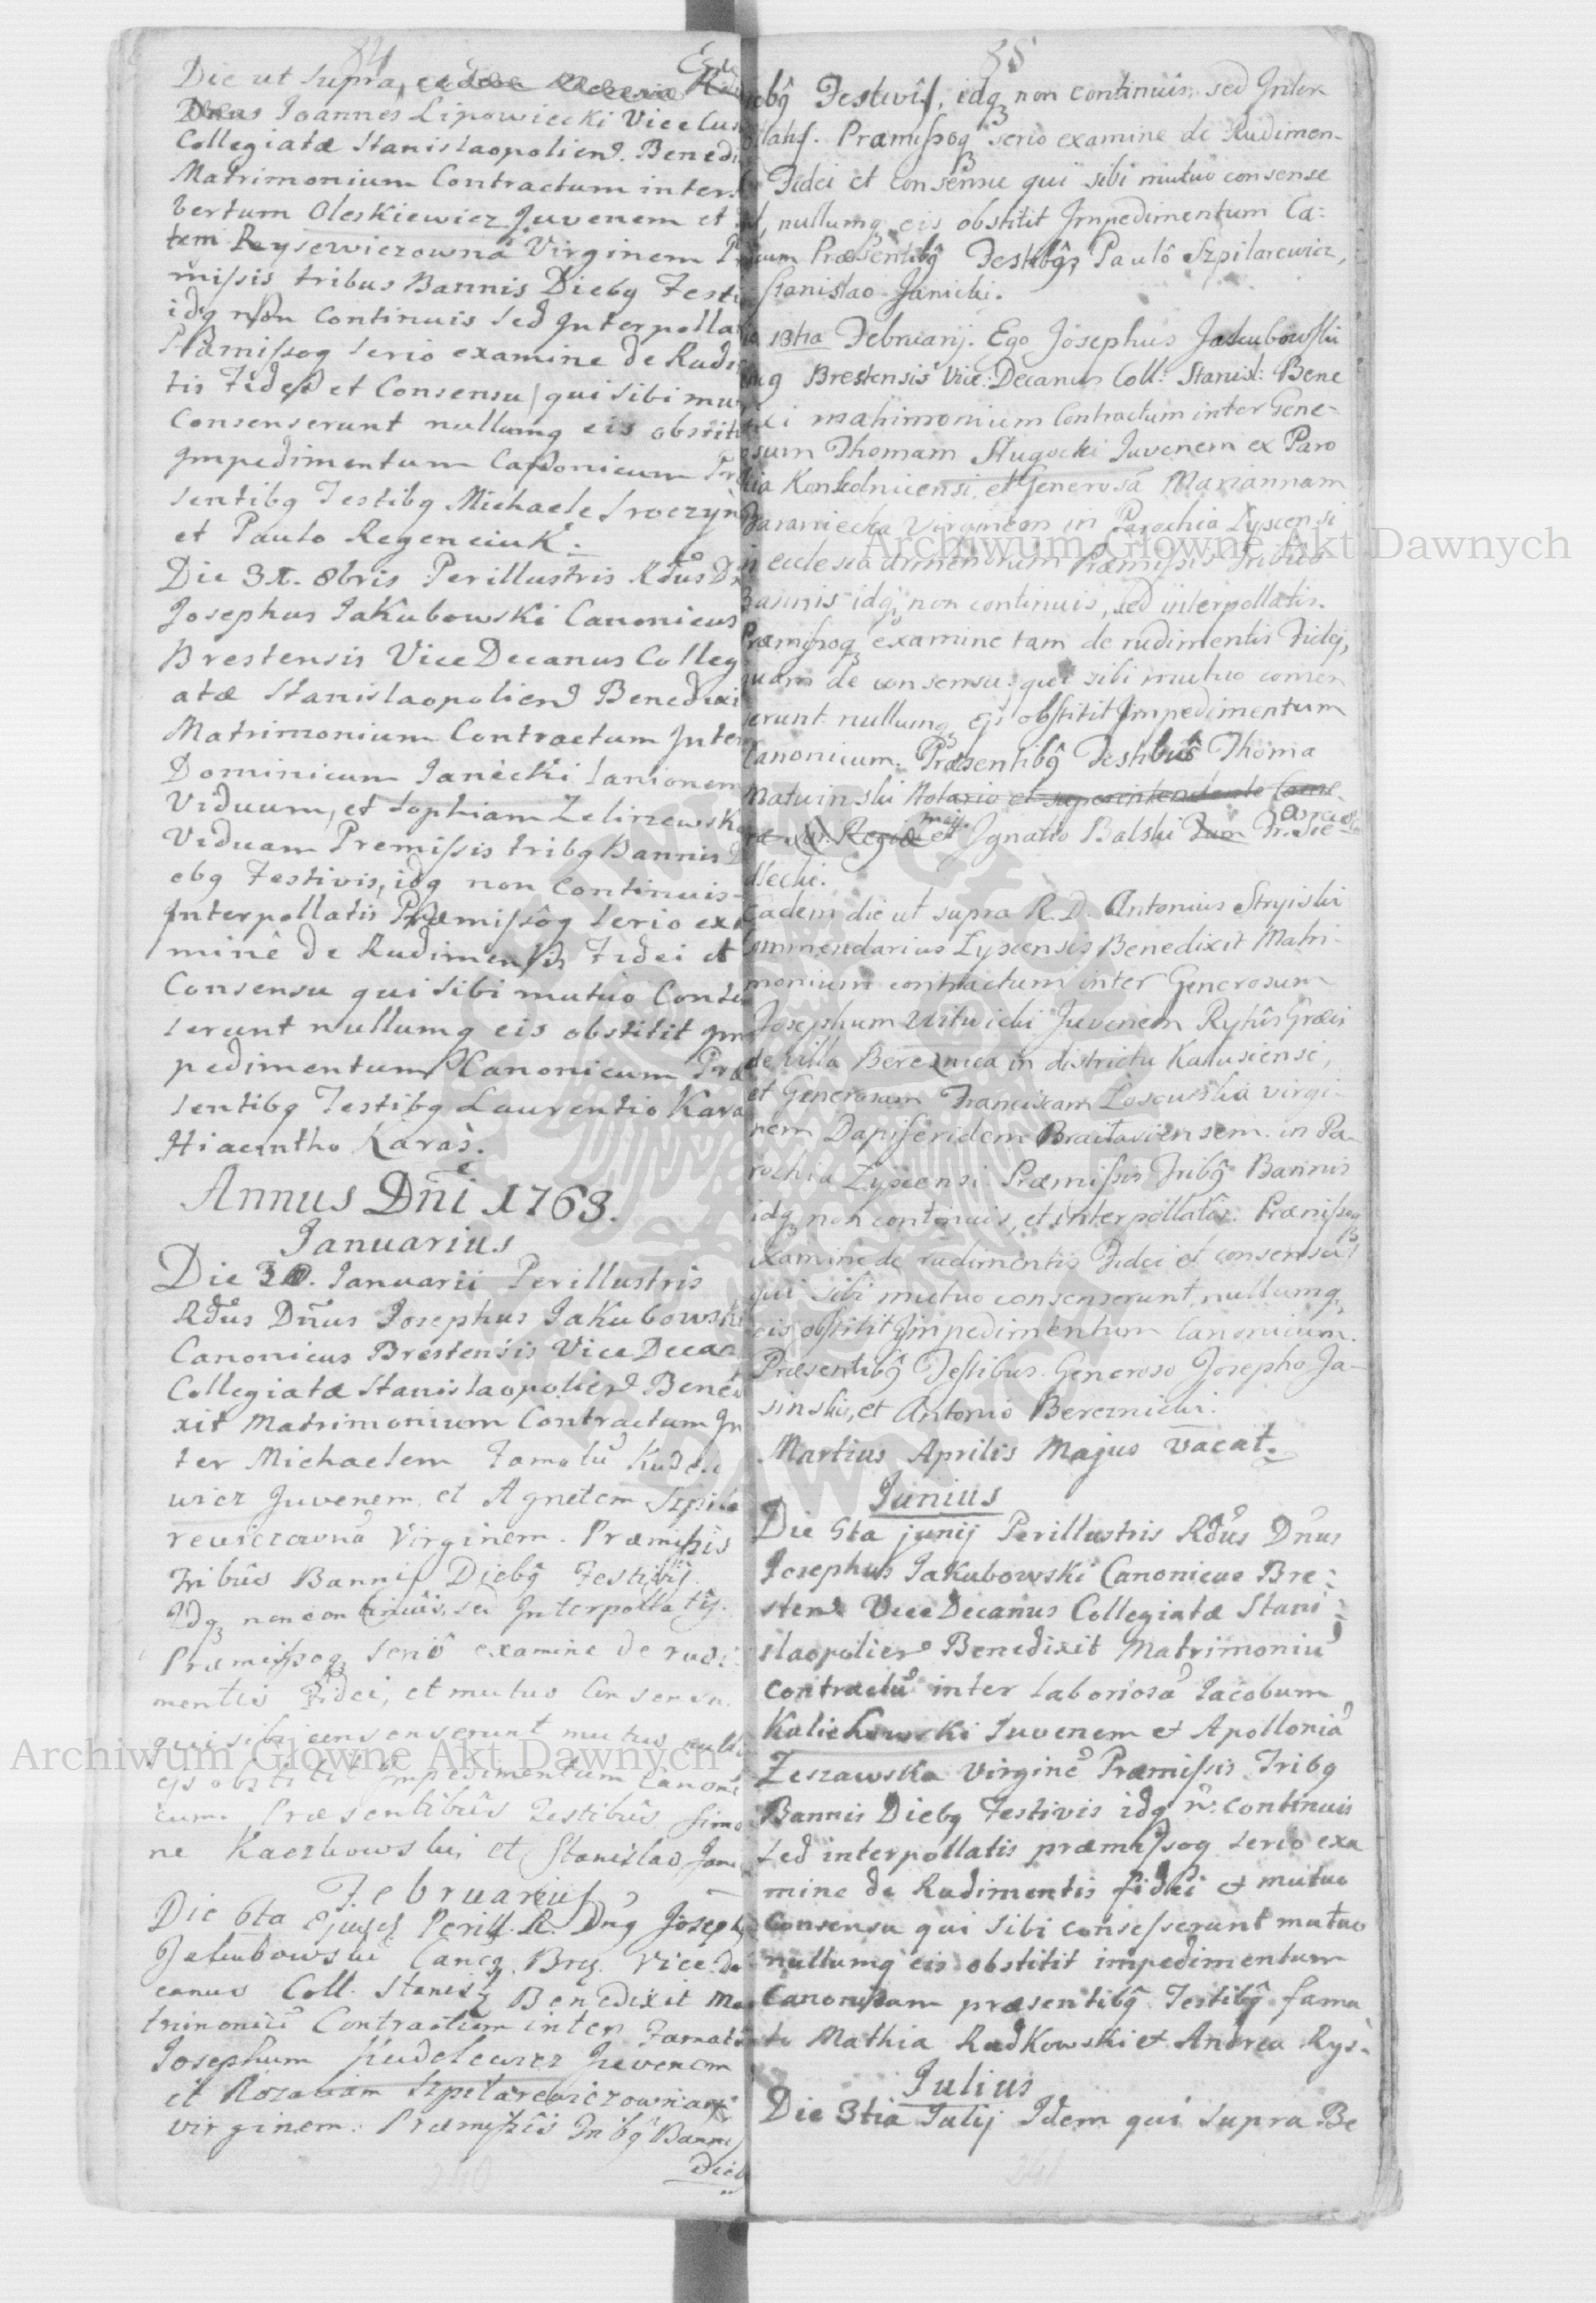 84
Die ut supra,
Dnus Joannes Lipowiecki Vice Cus
Collegiatæ Stanislaopolien. Benedi
Matrimonium Contractum inter
bertum Oleskiewicz Juvenem et
tem Reysewiczowna Virginem Pr
missis tribus Bannis Diebg Festi
idg non Continuis Sed Interpolla
Præmissog serio examine de Rudi
tis Fidei et Consensu qui sibi mu
Consenserunt nullumg eis obstit
Impedimentum Canonicum Pr
sentibg Testibg Michaele Sroczyn
et Paulo Regenciuk.
Die 31. 8bris Perillustris Rdus D
Josephus Jakubowski Canonicus
Brestensis ViceDecanus Colleg
atæ Stanislaopolien Benedixi
Matrimonium Contractum Inter
Dominicum Janicki Lanionem
Viduum, et Sophiam Zelirzewsk
Viduam Premissis tribg Bannis D
ebg Festivis, idg non Continuis
Interpollatis Præmissog serio exa
mine de Rudimentis Fidei et
Consensu qui sibi mutuo Conse
serunt nullumg eis obstitit Im
pedimentum Canonicum Præ
sentibg Testibg Laurentio Kara
Hiacintho Karaś.
Annus Dni 1763.
Januarius
Die 30. Januarii Perillustris
Rdus Dnus Josephus Jakubowski
Canonicus Brestensis Vice Decan
Collegiatæ Stanislaopolien Bened
xit Matrimonium Contractum In
ter Michaelem Famatu Kudele
wicz Juvenem et Agnetem Szpila
rewiczowna Virginem. Præmissis
Tribus Bannis Diebg Festivis
Idg non continuis, sed Interpollatis.
Præmissog serio examine de rudi
mentis Fidei, et mutuo Consensu
qui sibi consenserunt mutuo null
ejs obstitit Impedimentum Canoni
cum. Præsentibus Testibus Simo
ne Kaczkowski, et Stanislao Jani
Februarius
Die 6ta ejusd. Perill. R. Dng Joseph
Jakubowski Cancg Brg. Vice De
canus Coll. Stanisl Benedixit Ma
trimoniu Contractum inter Famat
Josephum Kudelewicz Juvenem
et Rozaliam Szpilarewiczowna
virginem. Præmissis Tribg Bannis
Dieb
240
85
iebg Festivis, idq non continuis, sed Inter
ollatis. Præmissoq serio examine de Rudimen-
Fidei et consensu qui sibi mutuo consense
nullumq eis obstitit Impedimentum Ca:
icum Præsentibg Testibg, Paulo Szpilarewicz,
Stanislao Janicki.
13tia Februarij. Ego Josephus Jakubowski
Brestensis Vice: Decanus Coll: Stanisl: Bene
xi matrimonium Contractum inter Gene-
osum Thomam Sługocki Juvenem ex Paro
hia Konkolnicensi, et Generosa Mariannam
Baraniecka Virginem in Parochia Lyscensi
in ecclesia Armenorum Præmissis Tribus
Bannis idq non continuis, sed interpollatis.
Præmissoq examine tam de rudimentis Fidej,
quam de consensu, qui sibi mutuo consen
serunt nullumq ejs obstitit Impedimentum
Canonicum. Præsentibg Testibus Thoma
Matwinski Notario et superintendente Came
Regiæ et Ignatio Balski
dlecki.
Eadem die ut supra R. D. Antonius Stryiski
Commendarius Lyscensis Benedixit Matri-
monium contractum inter Generosum
Josephum Witwicki Juvenem Rytus Græci
de Villa Bereznica in districtu Kalusiensi,
et Generosam Franciscam Losowska virgi-
nem Dapiferidem Braclaviensem. in Pa-
rochia Lyscensi. Præmissis Tribg Bannis
idq non continuis, et interpollatis. Præmissoq
Examine de rudimentis Fidei et consensu
qui sibi mutuo consenserunt, nullumq
eis obstitit Impedimentum Canonicum.
Præsentibg Testibus. Generoso Josepho Ja-
sinski, et Antonio Bereznicki.
Martius Aprilis Majus Vacat.
Junius
Die 5ta junij Perillustris Rdus Dnus
Josephus Jakubowski Canonicus Bre:
sten Vice Decanus Collegiatæ Stani:
slaopolien Benedixit Matrimoniu
Contractu inter Laboriosa Jacobum
Kalichowski Juvenem et Apollonia
Zeszawska Virgine Præmissis Tribg
Bannis Diebg Festivis idg n: continuis
Sed interpollatis præmissog serio exa
mine de Rudimentis fidei et mutuo
Consensu qui sibi consesserunt mutuo
nullumg eis obstitit impedimentum
Canonicum præsentibg Testibg fama
to Mathia Radkowski et Andrea Ryś
Julius
Die 3tia Julij Idem qui supra Be
241
Archiwum Główne Akt Dawnych
Archiwum Główne Akt Dawnych